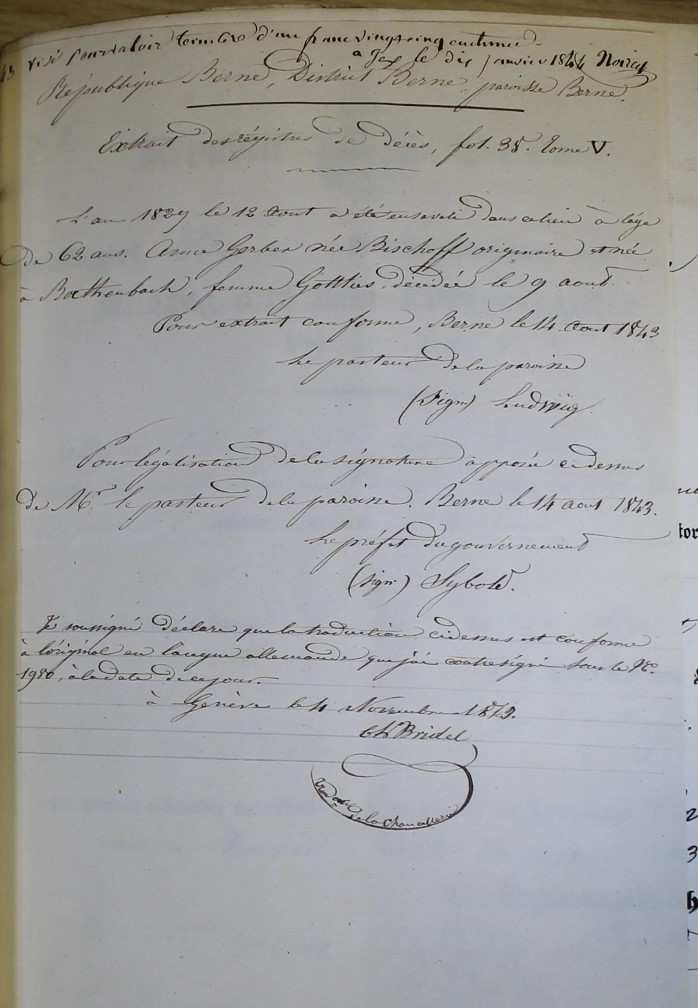 visé pour valoir timbre d'un franc vingt cinq centimes
a Gex le dix janvier 1844
République Berne, District Berne, paroisse Berne.
Extrait des régistres de décès, fol. 38. Tome V.
L'an 1829 le 12 aout a été ensevelie dans ce lieu à l'âge
de 62 ans. Anna Gerber née Bischoff originaire et née
à Rothenbach, femme Gottlieb, décédée le 9 aout.
Pour extrait conforme, Berne le 14 aout 1843
Le pasteur de la paroisse
(Signé) Ludwig
Pour légalisation de la signature apposée ci dessus
de Mr. le pasteur de la paroisse. Berne le 14 aout 1843.
Le préfet du gouvernement
(Signé)
Je soussigné déclare que la traduction ci dessus est conforme
à l'original en langue allemande que j'ai contresigné sous le No.
1980, à la date de ce jour.
à Genève le 4 Novembre 1843.
Ch Bridel
de la Chancellerie